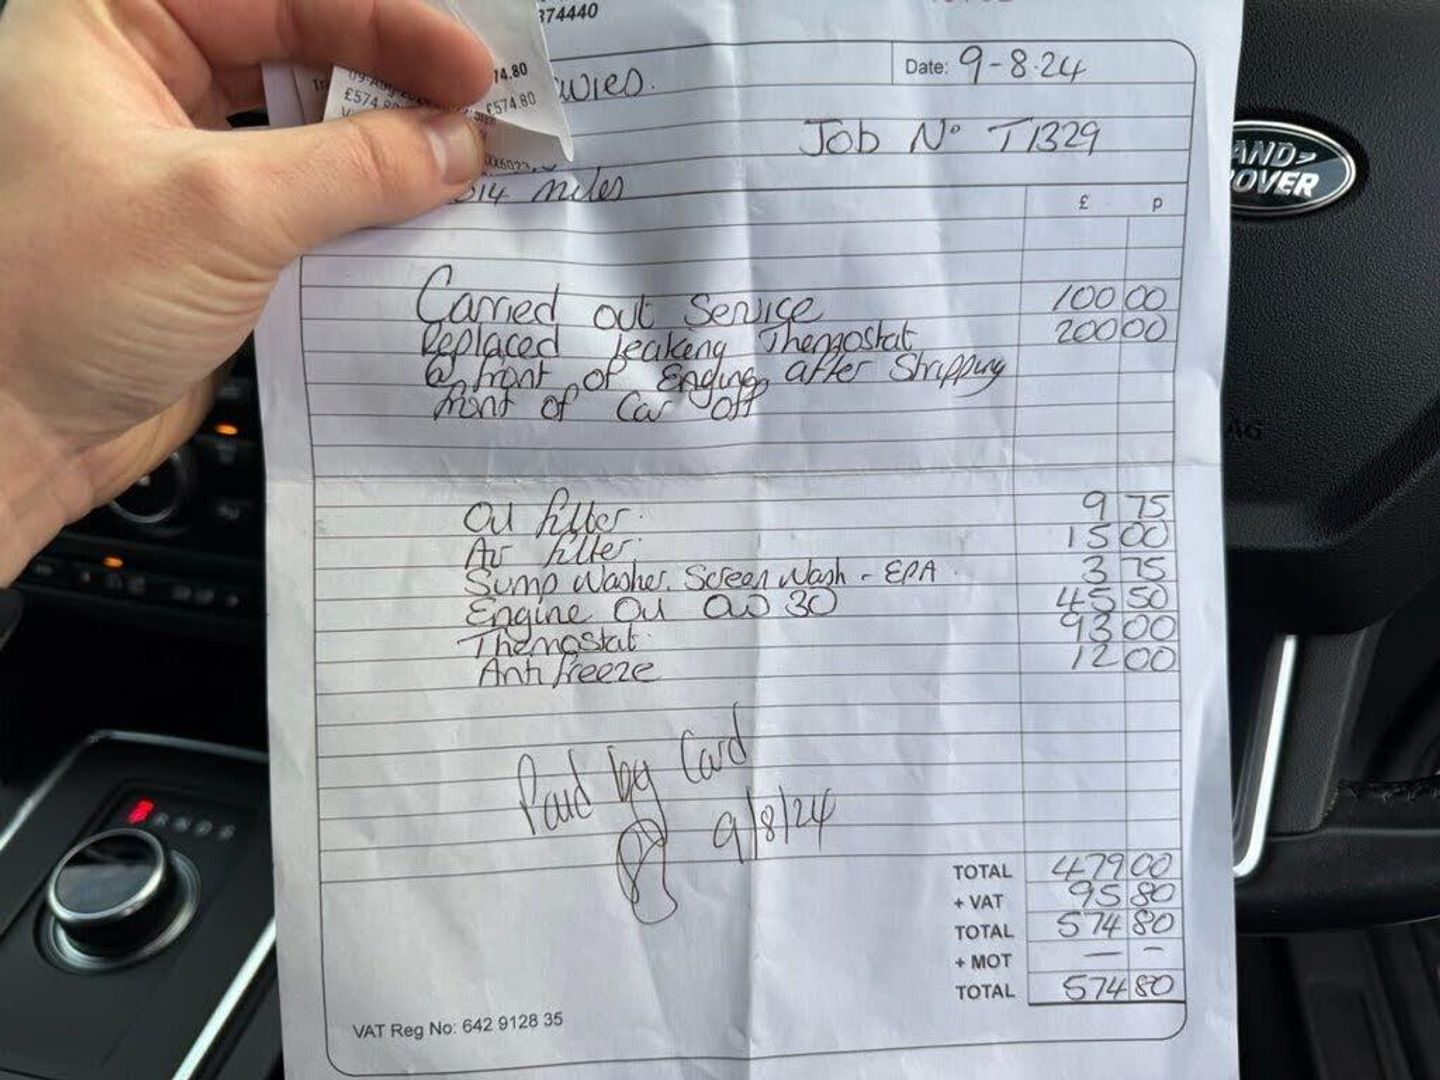 374440
74.80
09-Aug-20
£574.80 £574.80
XX6023
Date: 9-8-24
Job No T1329
314 miles
£ p
LAND ROVER
Carried out Service 100 00
Replaced leaking Thermostat 200 00
@ front of Engine after Stripping
front of Car off
Oil filter. 9 75
Air filter. 15 00
Sump Washer. Screen Wash - EPA 3 75
Engine Oil 0W30 45 50
Thermostat 93 00
Antifreeze 12 00
Paid by Card
9/8/24
TOTAL 479 00
+ VAT 95 80
TOTAL 574 80
+ MOT — –
TOTAL 574 80
VAT Reg No: 642 9128 35